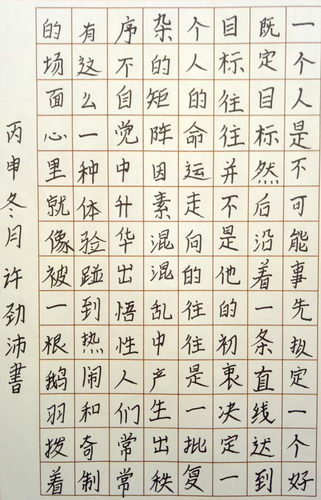 一个人是不可能事先执定一个好
既定目标然后沿着一条直线达到
目标往往并不是他的初衷决定一
个人的命运走向的往往是一批复
杂的矩阵因素混混乱中产生出秩
序不自觉中升华出悟性人们常常
有这么一种体验踫到热闹和奇制
的场面心里就像被一根鹅羽拨着
丙申冬月许劲沛書